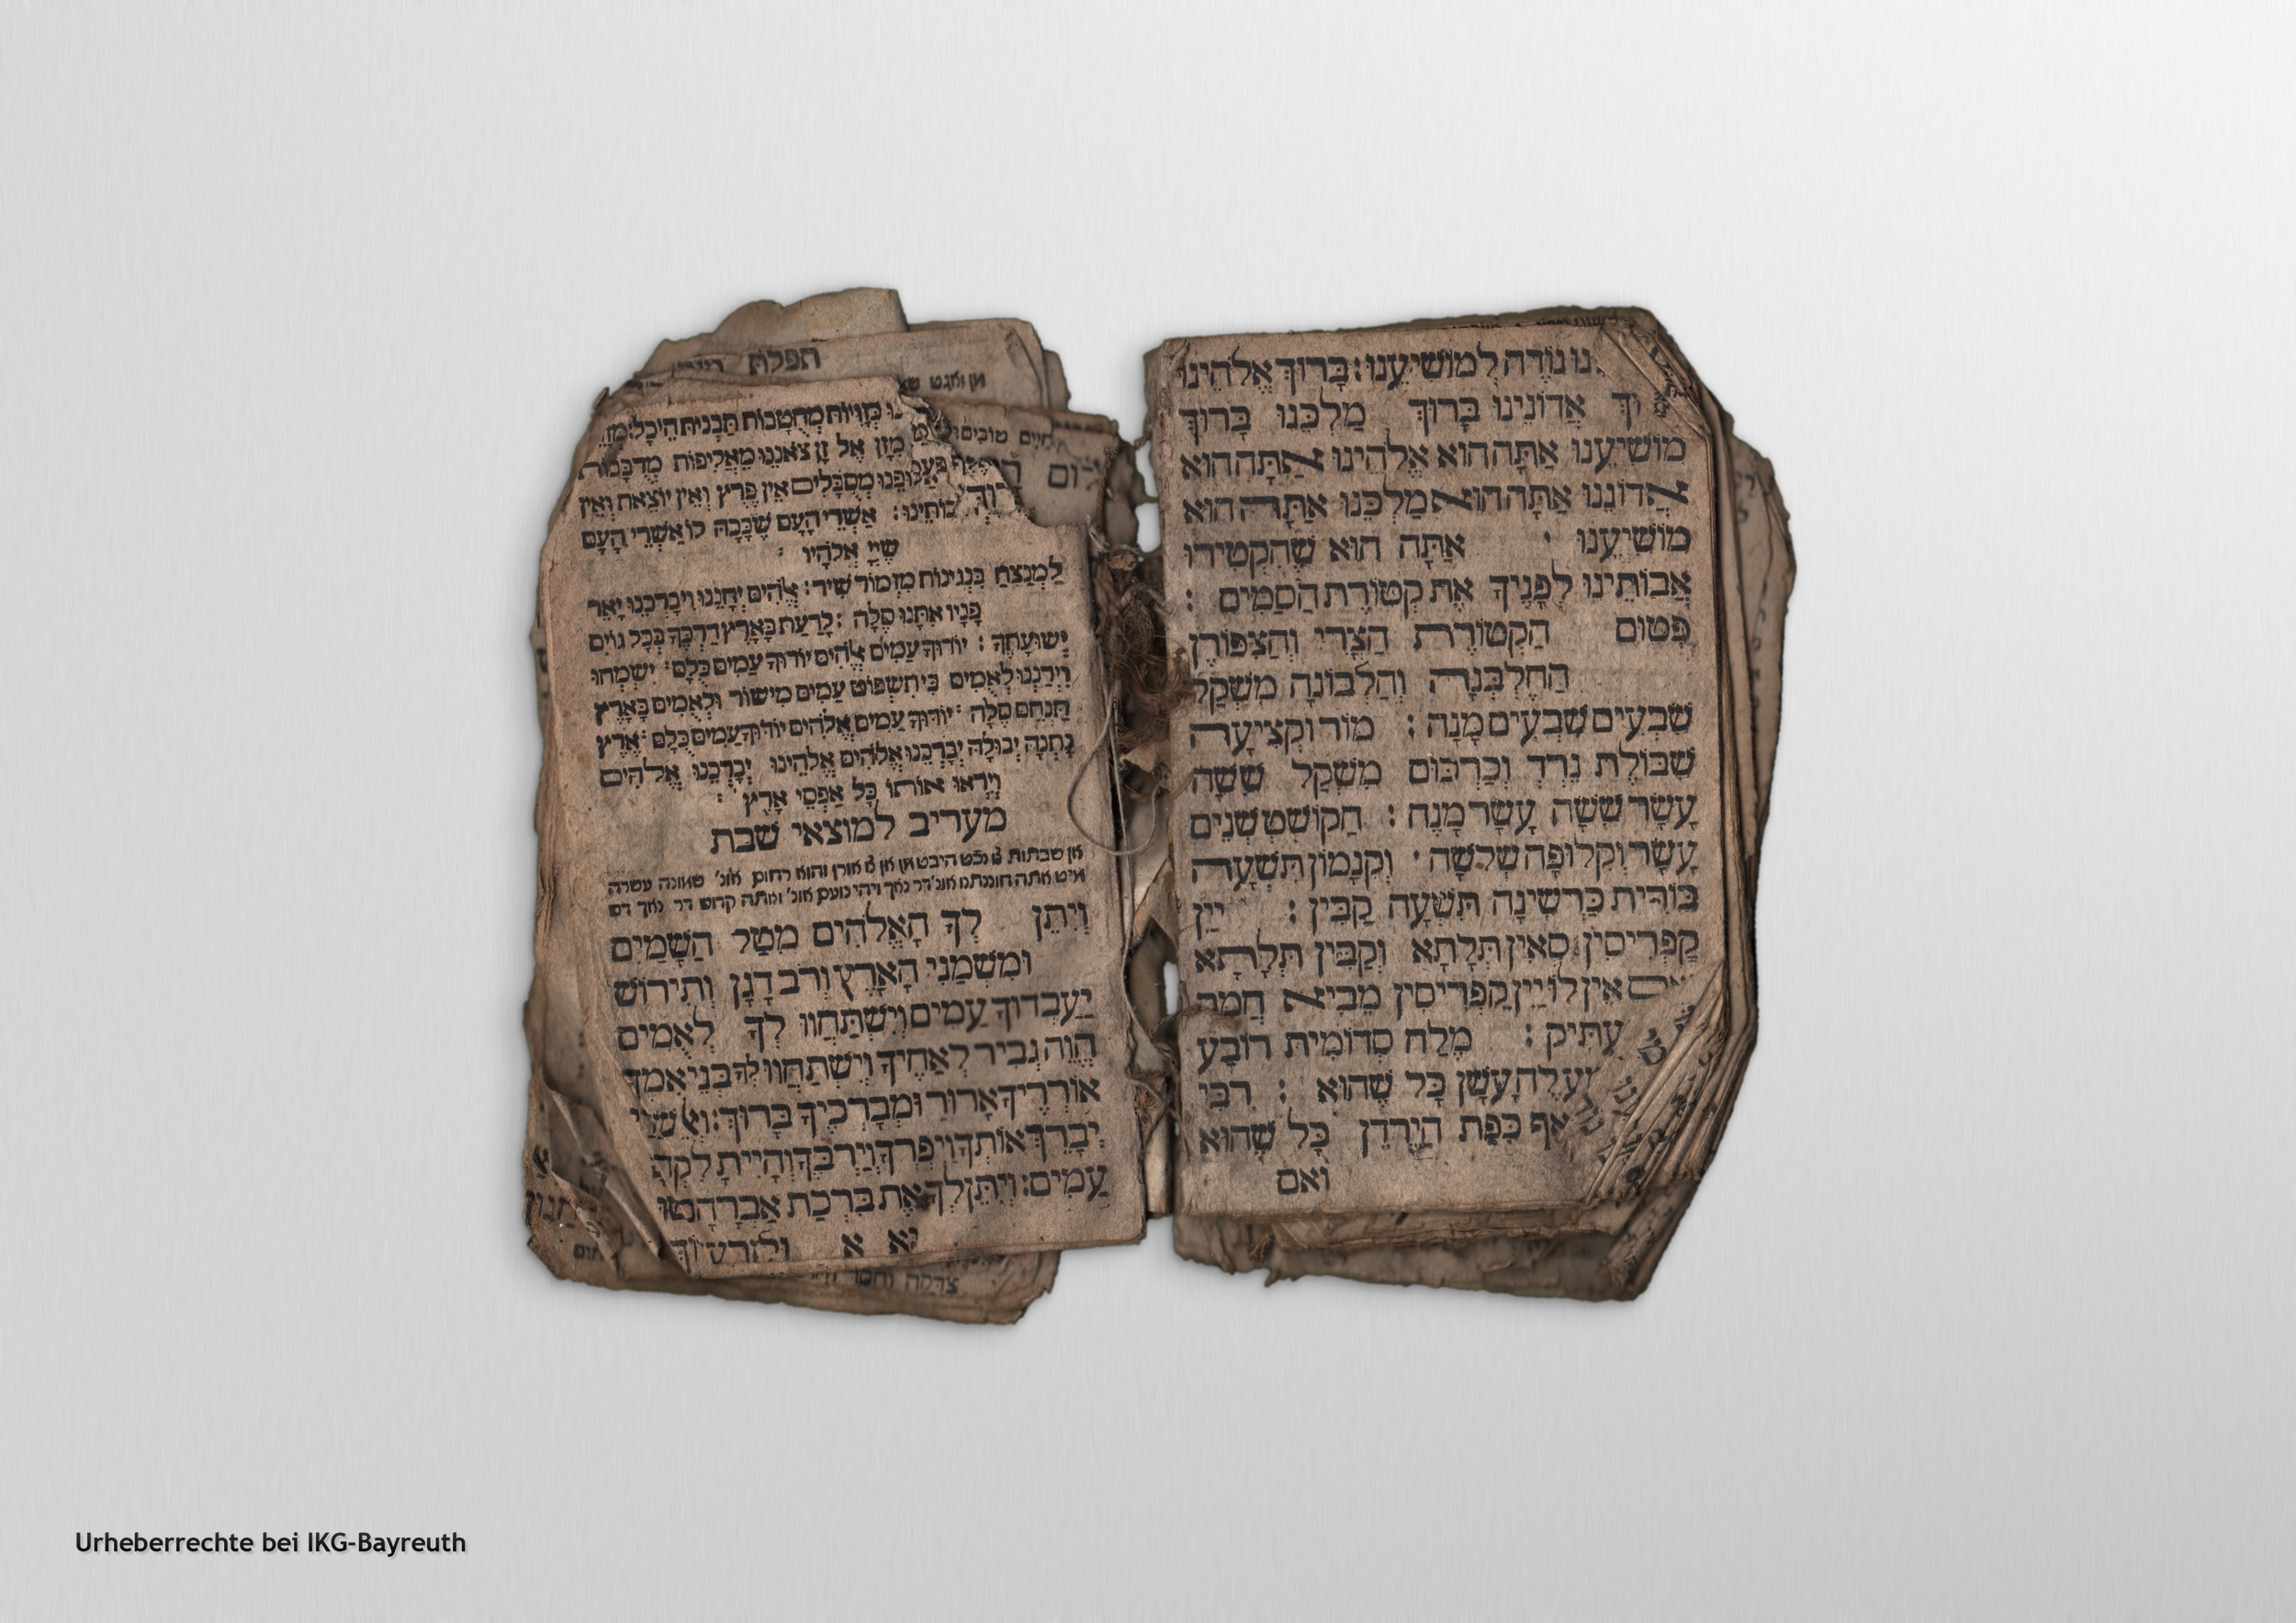 נו נודה למושיענו: ברוך אלהינו
אדונינו ברוך מלכנו ברוך
מושיענו אתה הוא אלהינו אתה הוא
אדוננו אתה הוא מלכנו אתה הוא
מושיענו · אתה הוא שהקטירו
אבותינו לפניך את קטורת הסמים :
פטום הקטורת הצרי והצפורן
החלבנה והלבונה משקל
שבעים שבעים מנה : מור וקציעה
שבולת נרד וכרכום משקל ששה
עשר ששה עשר מנה : הקושט שנים
עשר וקלופה שלשה · וקנמון תשעה
בורית כרשינה תשעה קבין : יין
קפריסין סאין תלתא וקבין תלתא
אין לו יין קפריסין מביא חמר
עתיק : מלח סדומית רובע
מעלה עשן כל שהוא : רבי
אף כפת הירדן כל שהוא
ואם
תפלת
מן זאגט
חיים טובים
מזוית מחטבות תבנית היכל:
מזן אל זן צאננו מאליפות מרבבות
מסבלים אין פרץ ואין יוצאת ואין
אשרי העם שככה לו אשרי העם
שיי אלהיו :
למנצח בנגינות מזמור שיר: אלהים יחננו ויברכנו יאר
פניו אתנו סלה : לדעת בארץ דרכך בכל גוים
ישועתך : יודוך עמים אלהים יודוך עמים כלם: ישמחו
וירננו לאמים כי תשפוט עמים מישור ולאמים בארץ
תנחם סלה : יודוך עמים אלהים יודוך עמים כלם: ארץ
נתנה יבולה יברכנו אלהים אלהינו יברכנו אלהים
וייראו אותו כל אפסי ארץ :
מעריב למוצאי שבת
והוא רחום אונ' שמונה עשרה
מיט אתה חוננתנו אונ' דר נאך ויהי נועם אונ' ואתה קדוש דר נאך דס
ויתן לך האלהים מטל השמים
ומשמני הארץ ורב דגן ותירוש
יעבדוך עמים וישתחוו לך לאמים
הוה גביר לאחיך וישתחוו לך בני אמך
אורריך ארור ומברכיך ברוך: ואל שדי
יברך אותך ויפרך וירבך והיית לקהל
עמים: ויתן לך את ברכת אברהם
צדקה וחסד
Urheberrechte bei IKG-Bayreuth